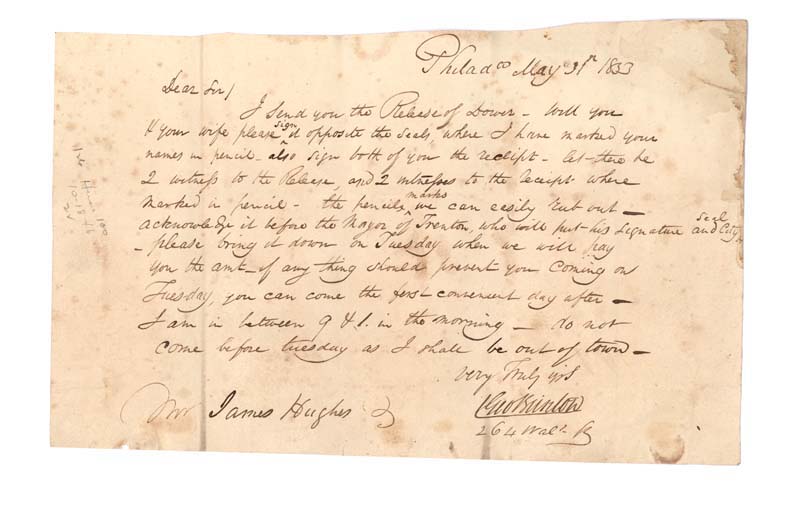 Philadᵃ May 31ˢᵗ 1833
Dear Sir/
I send you the Release of Dower - Will you
& your wife please sign it opposite the seals, where I have marked your
names in pencil - also sign both of you the receipt - let there be
2 witness to the Release, and 2 witnesses to the receipt where
marked in pencil - the pencil marks we can easily rub out -
acknowledge it before the Mayor of Trenton, who will put his signature and City Seal
- please bring it down on Tuesday when we will pay
you the amt - if any thing should prevent you coming on
Tuesday, you can come the first convenient day after -
I am in between 9 & 1. in the morning - do not
come before tuesday as I shall be out of town -
very Truly yrs
Geo
264 Waln
James Hughes